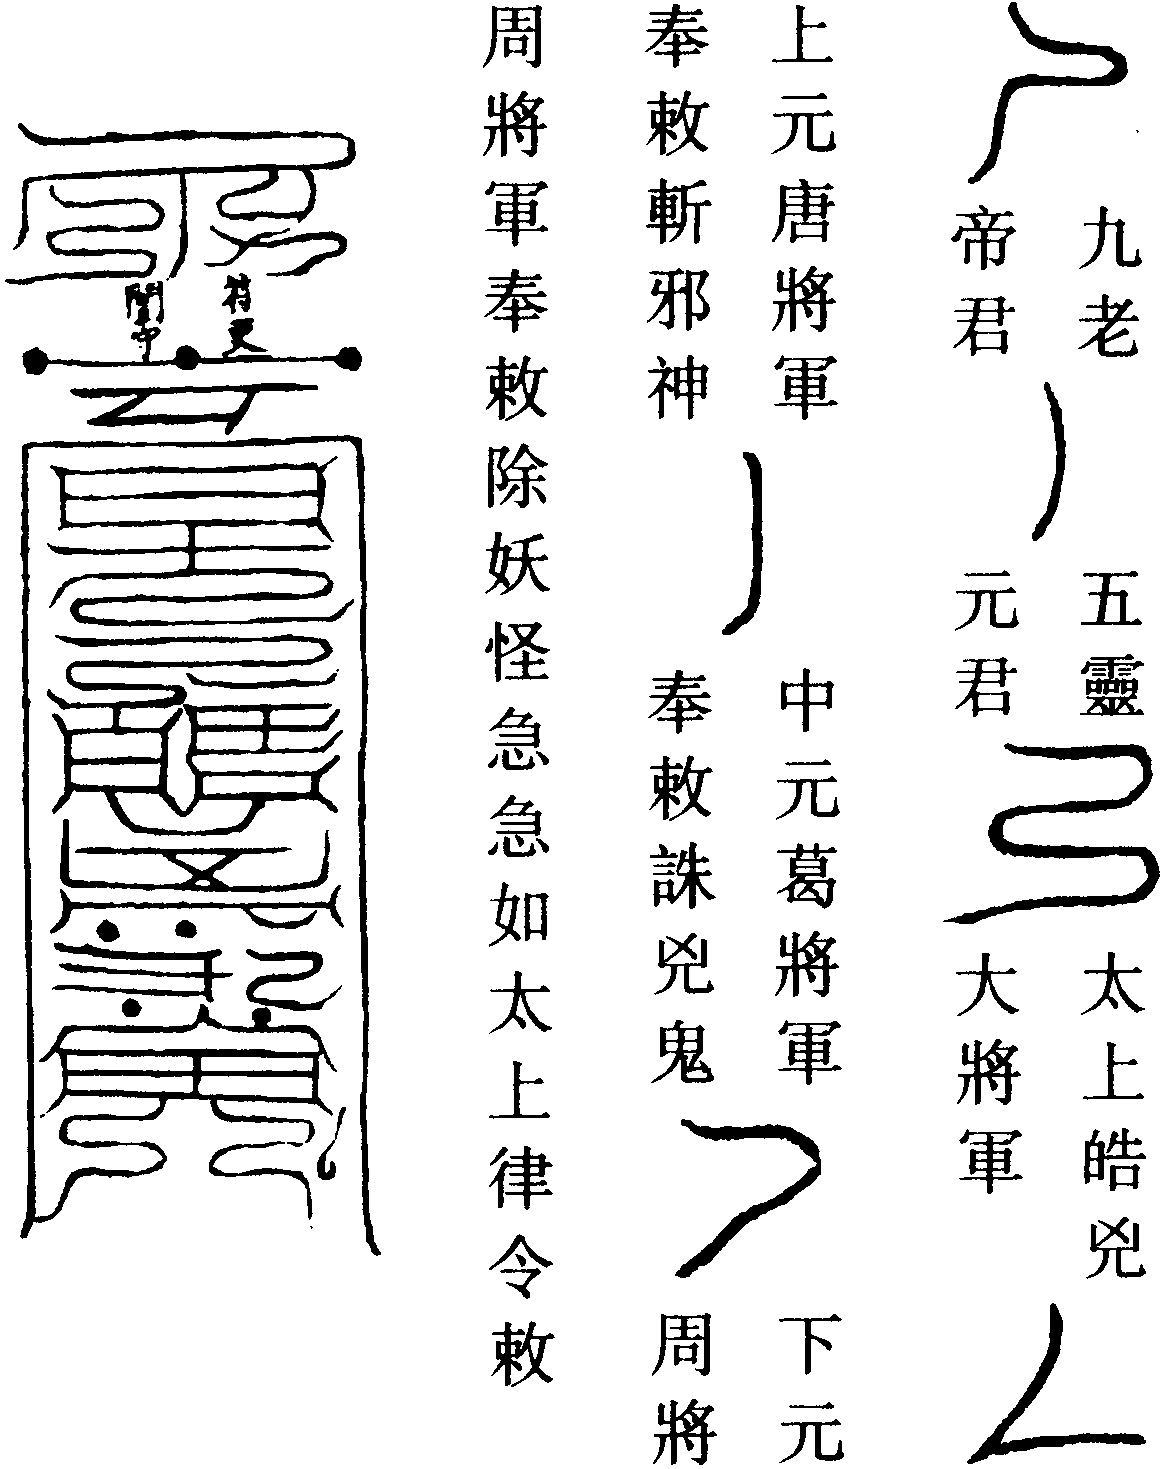 九老
帝君
五靈
元君
太上皓兇
大將軍
上元唐將軍
奉敕斬邪神
中元葛將軍
奉敕誅兇鬼
下元
周將
周將軍奉敕除妖怪急急如太上律令敕
符更